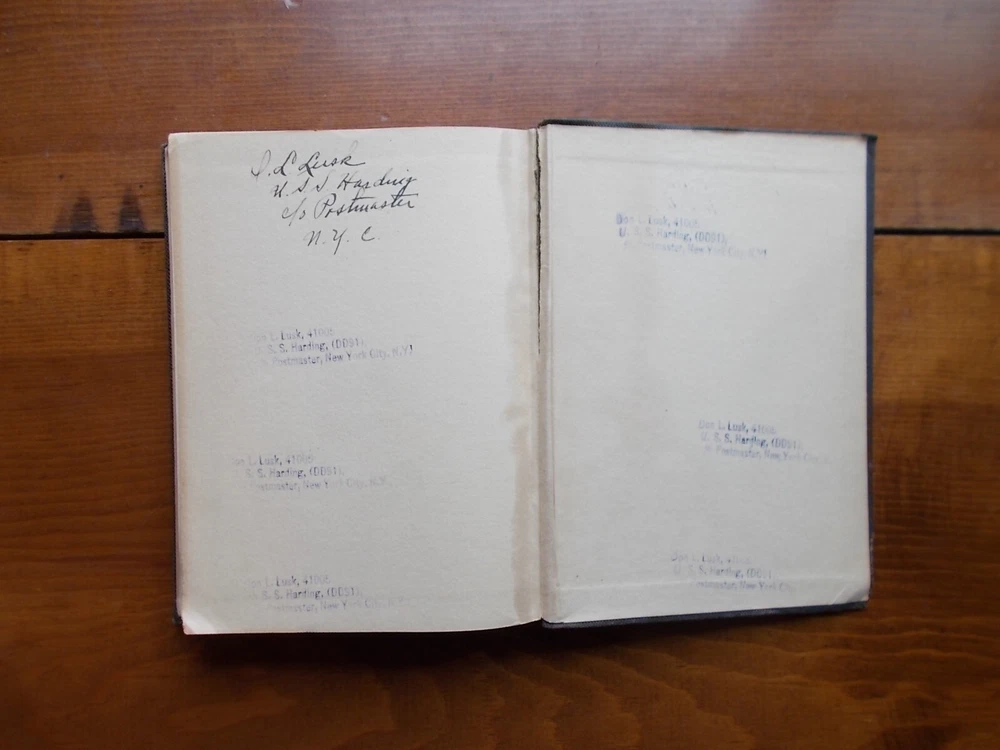 D. L. Lusk
U. S. S Harding
c/o Postmaster
N. Y. C.
L. Lusk, 41006
S. S. Harding, (DD91),
Postmaster, New York City, N.Y.
L. Lusk, 41006
S. S. Harding, (DD91),
Postmaster, New York City, N.Y.
L. Lusk, 41006
S. S. Harding, (DD91),
Postmaster, New York City, N.Y.
Don L. Lusk, 41006
U. S. S. Harding, (DD91),
Postmaster, New York City, N.Y.
Don L. Lusk, 41006
U. S. S. Harding, (DD91),
Postmaster, New York City,
Don L. Lusk,
U. S. S. Harding, (DD91),
Postmaster, New York City,